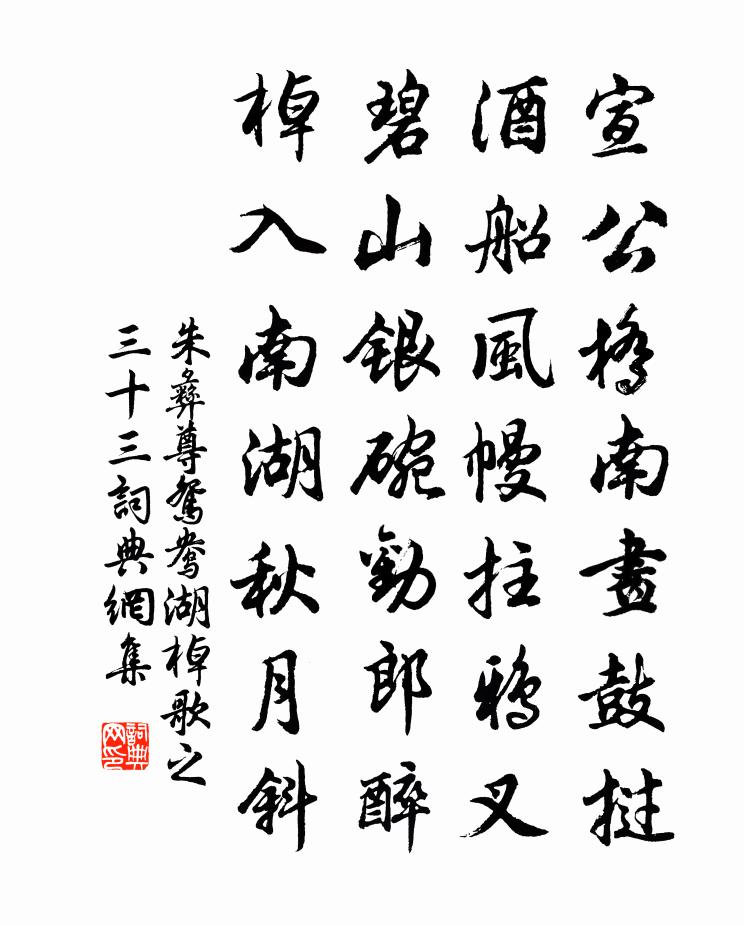 宣公橋南畫鼓撾
酒船風幔拄鴉叉
碧山銀碗勸郎醉
棹入南湖秋月斜
朱彝尊鴛鴦湖棹歌之
三十三詞典網集
詞典
网印